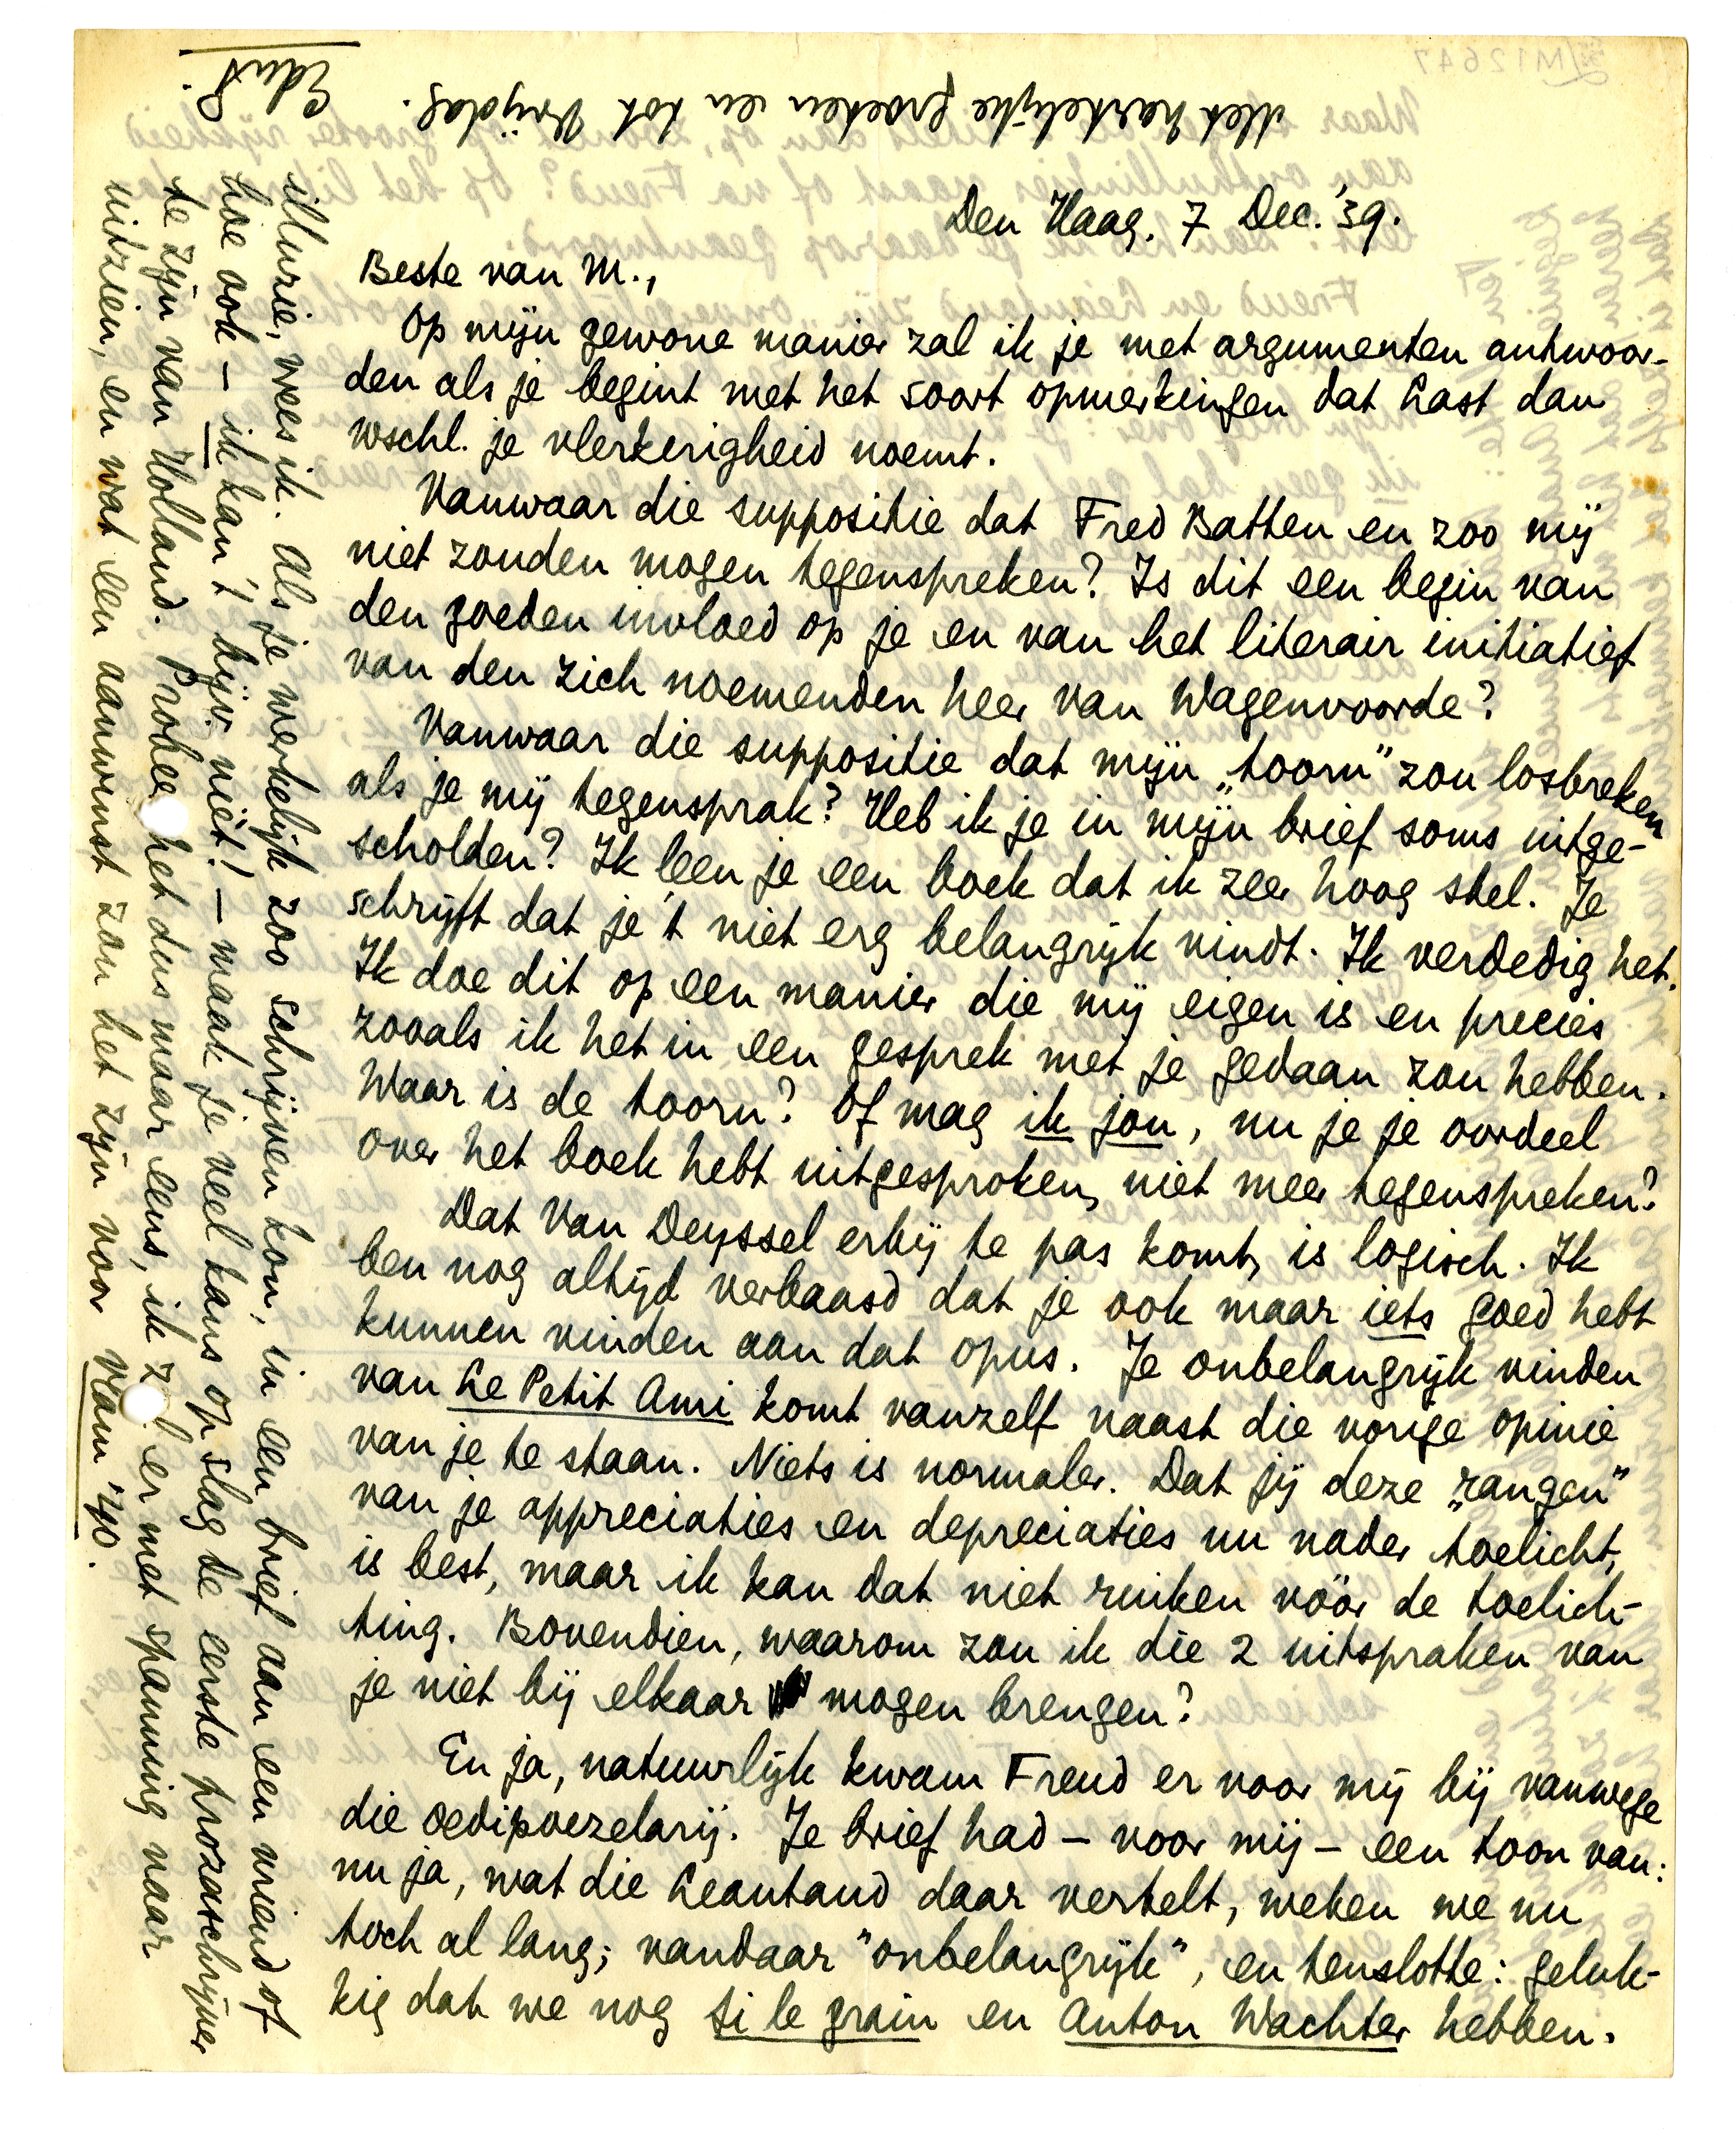 Den Haag. 7 Dec. '39.
Beste van M.,
Op mijn gewone manier zal ik je met argumenten antwoor-
den als je begint met het soort opmerkingen dat Last dan
wschl. je vlerkerigheid noemt.
Vanwaar die suppositie dat Fred Batten en zoo mij
niet zouden mogen tegenspreken? Is dit een begin van
den goeden invloed op je en van het literair initiatief
van den zich noemenden heer van Wagenvoorde?
Vanwaar die suppositie dat mijn „toorn" zou losbreken
als je mij tegensprak? Heb ik je in mijn brief soms uitge-
scholden? Ik leen je een boek dat ik zeer hoog stel. Je
schrijft dat je 't niet erg belangrijk vindt. Ik verdedig het.
Ik doe dit op een manier die mij eigen is en precies
zooals ik het in een gesprek met je gedaan zou hebben.
Waar is de toorn? Of mag ik jou, nu je je oordeel
over het boek hebt uitgesproken, niet meer tegenspreken?
Dat Van Deyssel erbij te pas komt, is logisch. Ik
ben nog altijd verbaasd dat je ook maar iets goed hebt
kunnen vinden aan dat opus. Je onbelangrijk vinden
van Le Petit Ami komt vanzelf naast die vorige opinie
van je te staan. Niets is normaler. Dat jij deze „rangen"
van je appreciaties en depreciaties nu nader toelicht,
is best, maar ik kan dat niet ruiken vóór de toelich-
ting. Bovendien, waarom zou ik die 2 uitspraken van
je niet bij elkaar mogen brengen?
En ja, natuurlijk kwam Freud er voor mij bij vanwege
die oedipoezelarij. Je brief had – voor mij – een toon van:
nu ja, wat die Léautaud daar vertelt, weten we nu
toch al lang; vandaar "onbelangrijk", en tenslotte: geluk-
kig dat we nog Si le grain en Anton Wachter hebben.
illuzie, vrees ik. Als je werkelijk zoo schrijven kon, in een brief aan een vriend of
hoe ook – ik kan 't bijv. niét! – maak je veel kans op slag de eerste prozaschrijver
te zijn van Holland. Probee het dus maar eens, ik z l er met spanning naar
uitzien, en wat een aanwinst zou het zijn voor Werk '40.
Met hartelijke groeten en tot Vrijdag.
EduP.
M12647